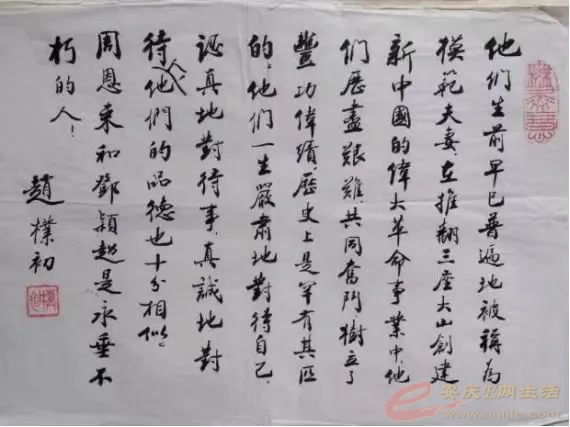 他们生前早已普遍地被稱为
模範夫妻,在推翻三座大山創建
新中國的偉大革命事業中,他
们歷盡艱難,共同奮鬥,樹立了
豐功偉績,歷史上是罕有其匹
的。他们一生嚴肅地對待自己,
認真地對待事,真誠地對
待人,他們的品德也十分相似。
周恩来和鄧穎超是永垂不
朽的人!
趙樸初
安庆E网生活
www.aqlife.com